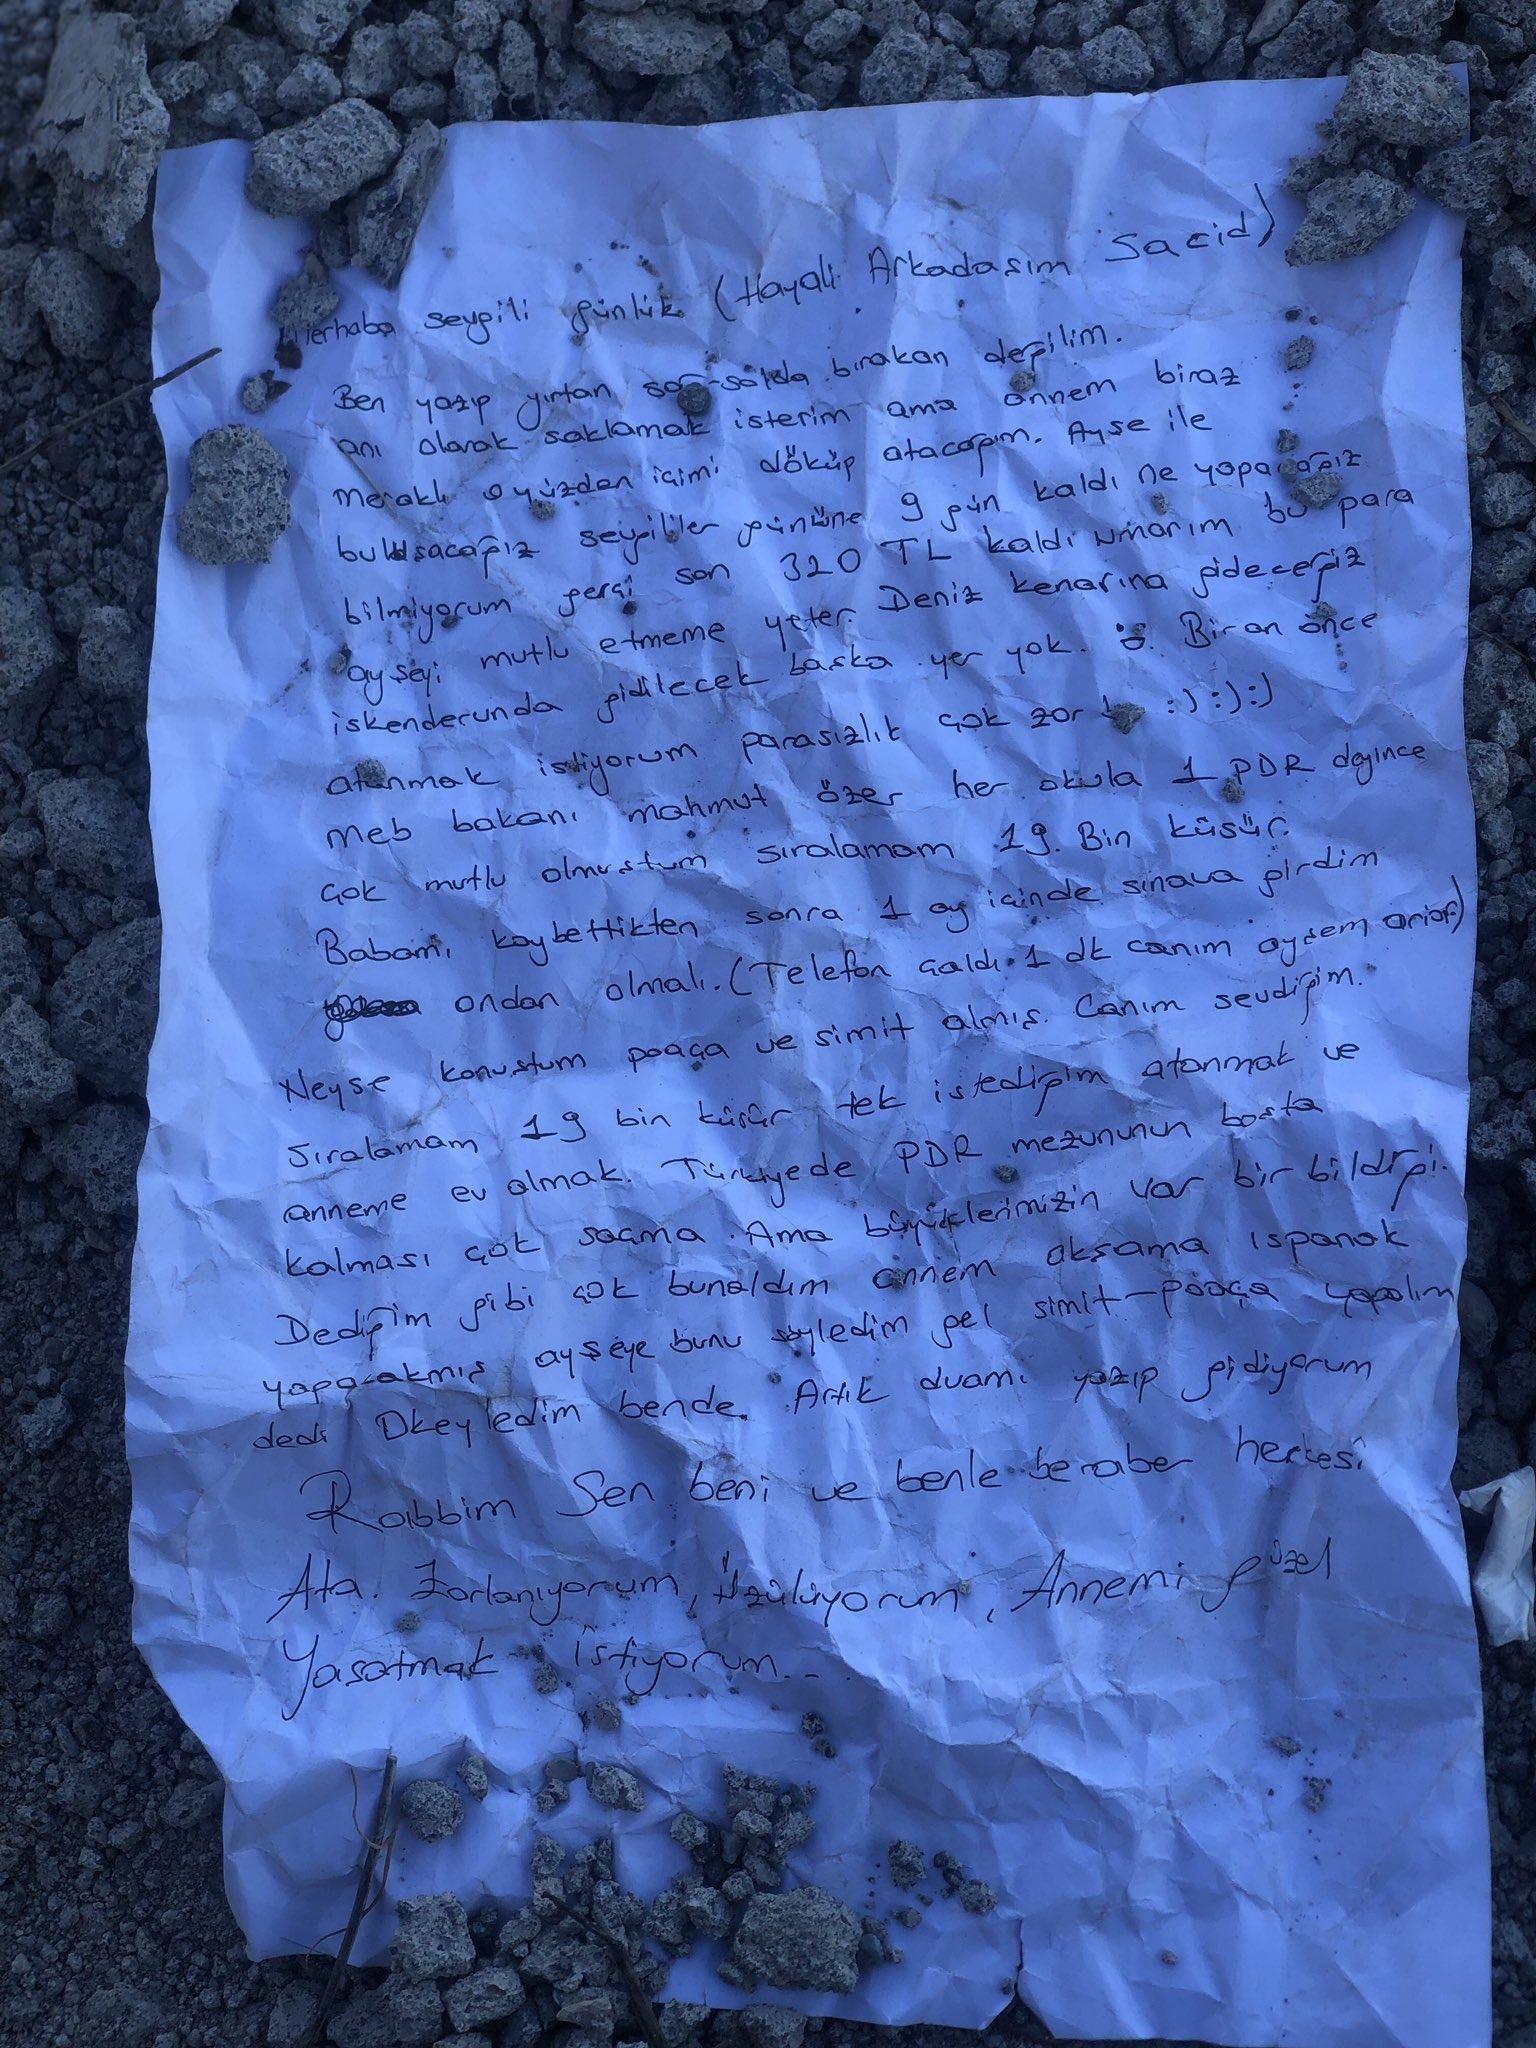 Merhaba sevgili günlük (Hayali Arkadaşım Sacid)
Ben yazıp yırtan sağ-solda bırakan değilim.
anı olarak saklamak isterim ama annem biraz
meraklı o yüzden içimi döküp atacağım. Ayşe ile
buluşacağız sevgililer gününe 9 gün kaldı ne yapacağız
bilmiyorum gerçi son 320 TL kaldı umarım bu para
ayşeyi mutlu etmeme yeter. Deniz kenarına gideceğiz
iskenderunda gidilecek başka yer yok. Bir an önce
atanmak istiyorum parasızlık çok zor :) :) :)
Meb bakanı mahmut özer her okula 1 PDR deyince
çok mutlu olmuştum sıralamam 19. Bin küsür.
Babamı kaybettikten sonra 1 ay içinde sınava girdim
ondan olmalı. (Telefon çaldı 1 dk canım ayşem arıor)
Neyse konuştum poaça ve simit almış. Canım sevdiğim.
Sıralamam 19 bin küsür tek istediğim atanmak ve
anneme ev almak. Türkiyede PDR mezununun boşta
kalması çok saçma. Ama büyüklerimizin var bir bildiği.
Dediğim gibi çok bunaldım annem akşama ıspanak
yapacakmış ayşeye bunu söyledim gel simit-poaça yapalım
dedi Okeyledim bende. Artık duamı yazıp gidiyorum
Rabbim Sen beni ve benle beraber herkesi
Ata. Zorlanıyorum, Üzülüyorum, Annemi güzel
Yaşatmak istiyorum...